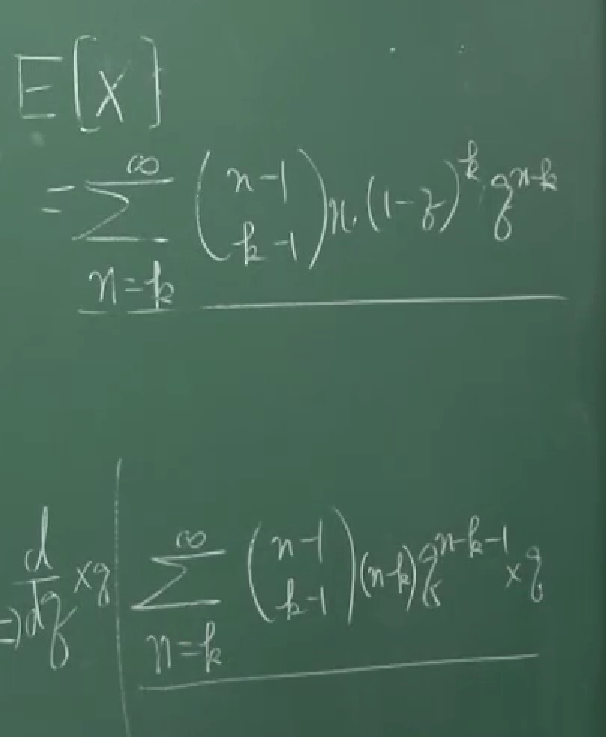 E[X]
= ∑_{n=k}^{∞} \binom{n-1}{k-1} n. (1-q)^k q^{n-k}
⇒ d/dq × q | ∑_{n=k}^{∞} \binom{n-1}{k-1} (n-k) q^{n-k-1} × q